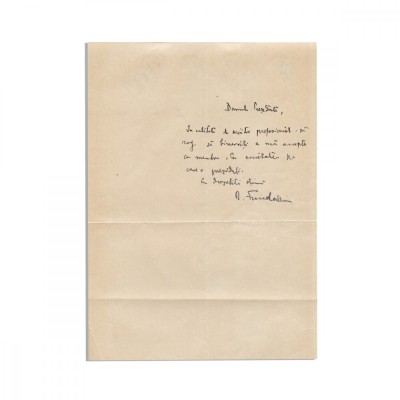 Domnule Președinte,
In calitate de scriitor profesionist, vă
rog să binevoiți a mă accepta
ca membru, în societatea pe
care o prezidați.
Cu deosebită stimă